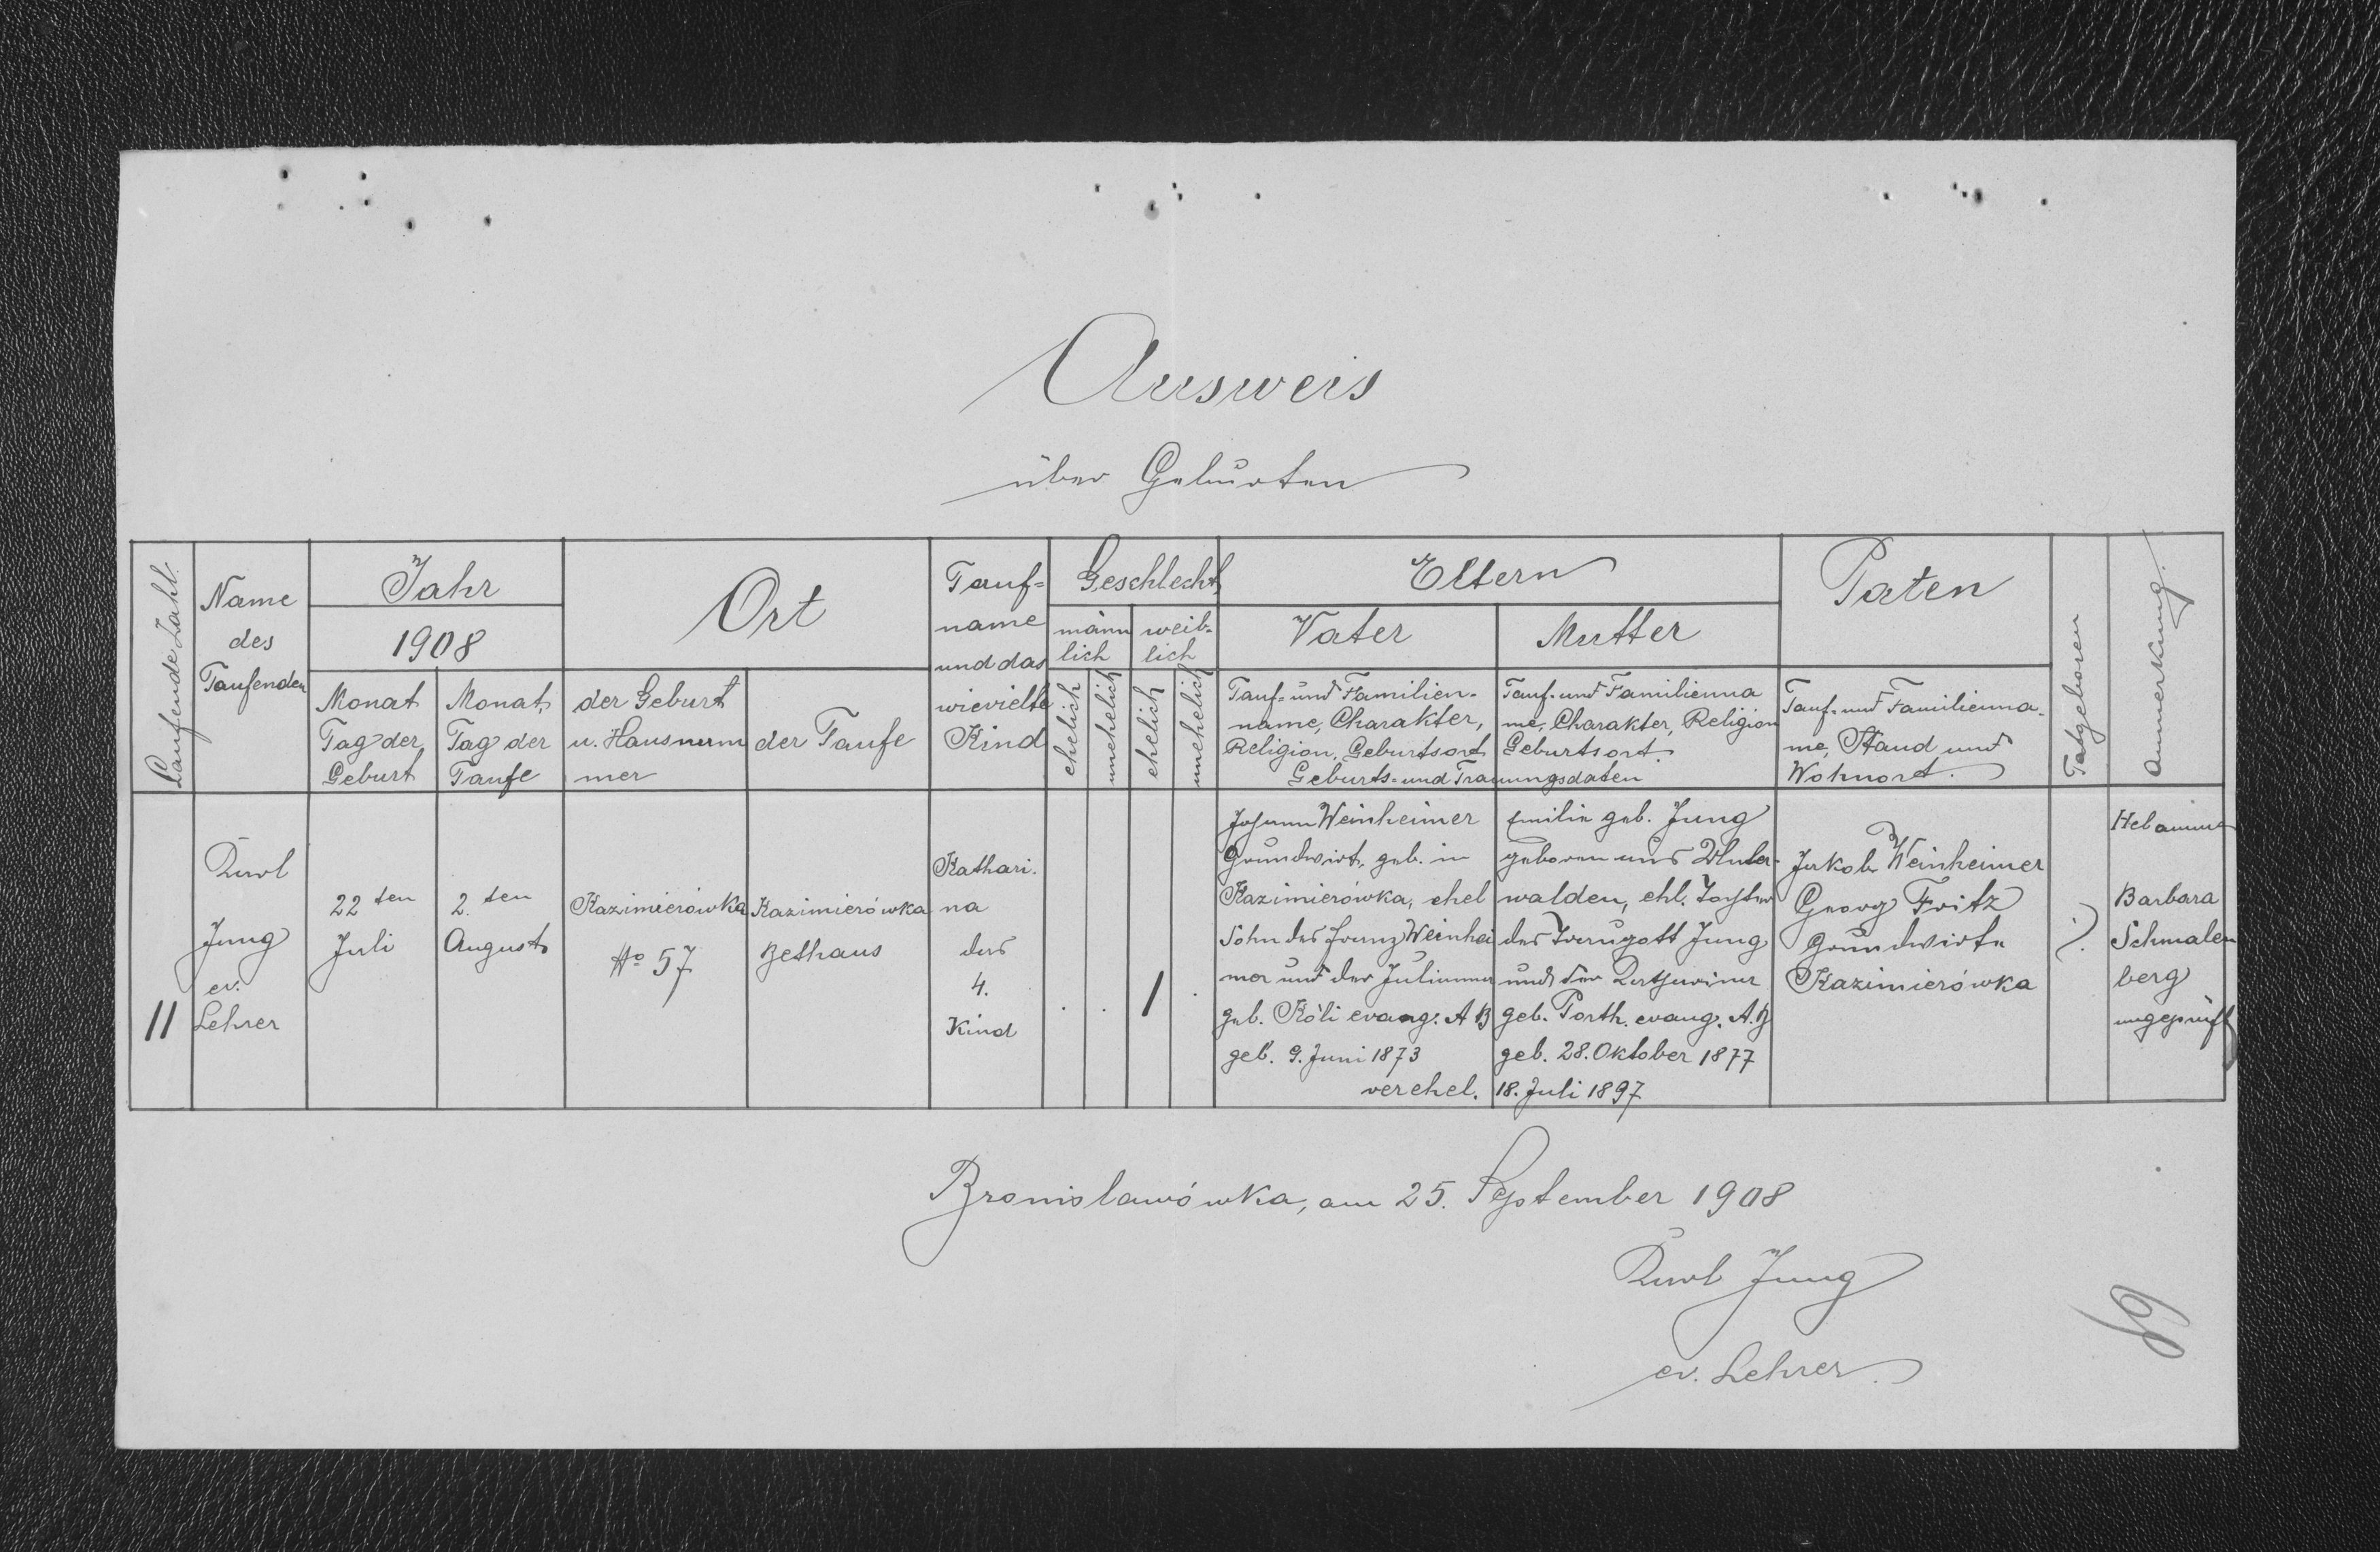 Ausweis
über Geburten
Laufende Zahl.
Name
des
Taufenden
Jahr
1908
Monat
Tag der
Geburt
Monat,
Tag der
Taufe
Ort
der Geburt
u. Hausnum
mer
der Taufe
Tauf=
name
und das
wievielte
Kind
Geschlecht
männ
lich
weib-
lich
ehelich
unehelich
ehelich
unehelich
Eltern
Vater
Mutter
Tauf- und Familien-
name, Charakter,
Religion, Geburtsort
Tauf- und Familienna
me, Charakter, Religion
Geburtsort.
Geburts- und Trauungsdaten
Paten
Tauf- und Familienna-
me, Stand und
Wohnort.
Totgeboren
Anmerkung.
11
Karl
Jung
ev.
Lehrer
22 ten
Juli
2. ten
August
Kazimierówka
No 57
Kazimierówka
Bethaus
Kathari-
na
das
4.
Kind
1
Johann Weinheimer
Grundwirt, geb. in
Kazimierówka, ehel
Sohn des Franz Weinhei
mer und der Julianna
geb. Köli evang. A B
geb. 9. Juni 1873
Emilie geb. Jung
geboren
walden, ehl. Tochter
des Traugott Jung
und der
geb. Porth. evang. A.B
geb. 28. Oktober 1877
verehel. 18. Juli 1897
Jakob Weinheimer
Georg Fritz
Grundwirte
Kazimierówka
Hebamme
Barbara
Schmalen
berg
ungeprüft
Bronislawówka, am 25. September 1908
Karl Jung
ev. Lehrer.
69